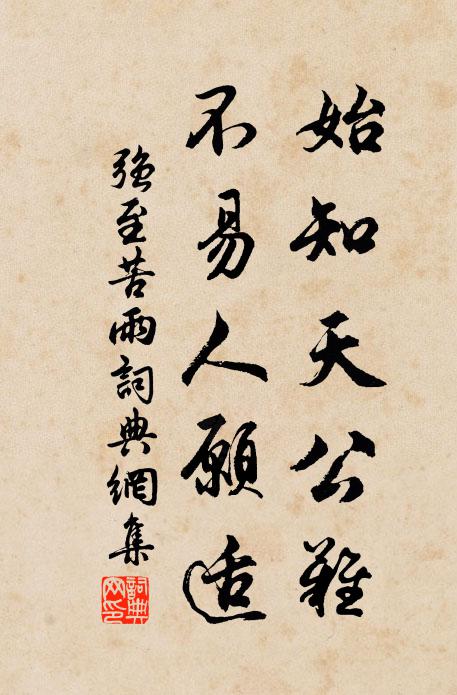 始知天公難
不易人願适
強至苦雨詞典網集
詞典網印